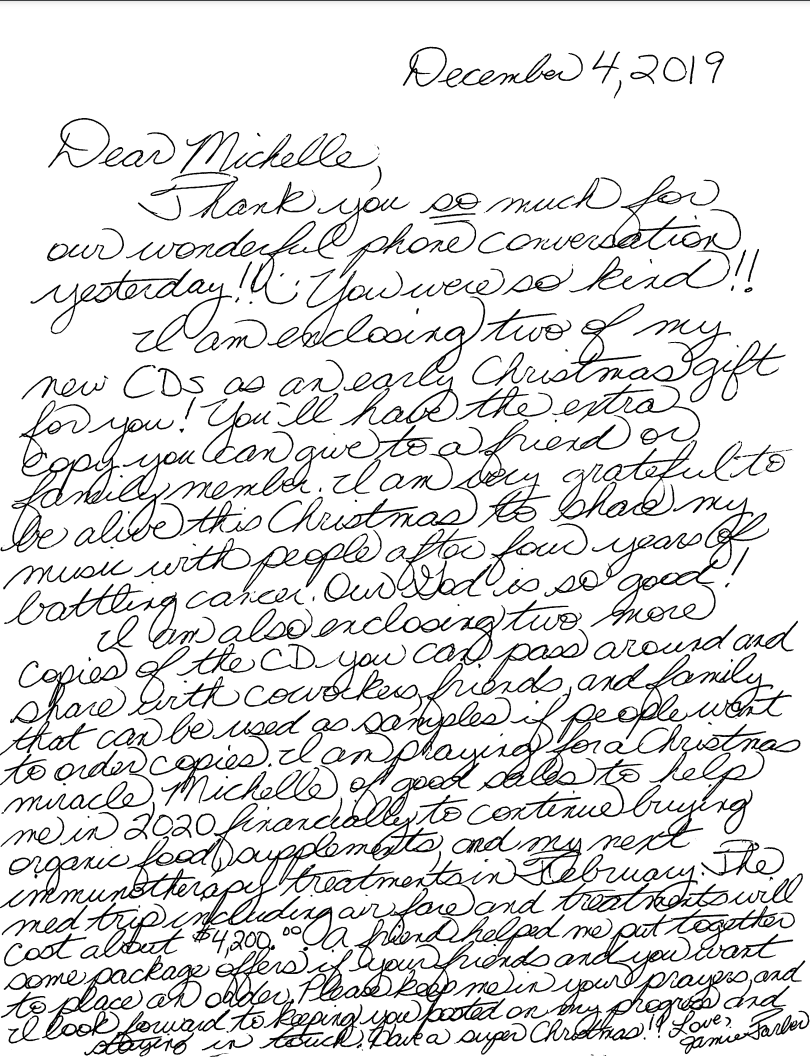 December 4, 2019
Dear Michelle,
Thank you so much for
our wonderful phone conversation
yesterday!! You were so kind!!
I am enclosing two of my
new CDs as an early Christmas gift
for you! You'll have the extra
copy you can give to a friend or
family member. I am very grateful to
be alive this Christmas to share my
music with people after four years of
battling cancer. Our God is so good!
I am also enclosing two more
copies of the CD you can pass around and
share with coworkers, friends, and family
that can be used as samples if people want
to order copies. I am praying for a Christmas
miracle, Michelle of good sales to help
me in 2020 financially to continue buying
organic food, supplements, and my next
immunotherapy treatments in February. The
med trip including air fare and treatments will
cost about $4,200.00. A friend helped me put together
some package offers if your friends and you want
to place an order. Please keep me in your prayers and
I look forward to keeping you posted on my progress and
staying in touch. Have a super Christmas!! Love,
Jamie Parker